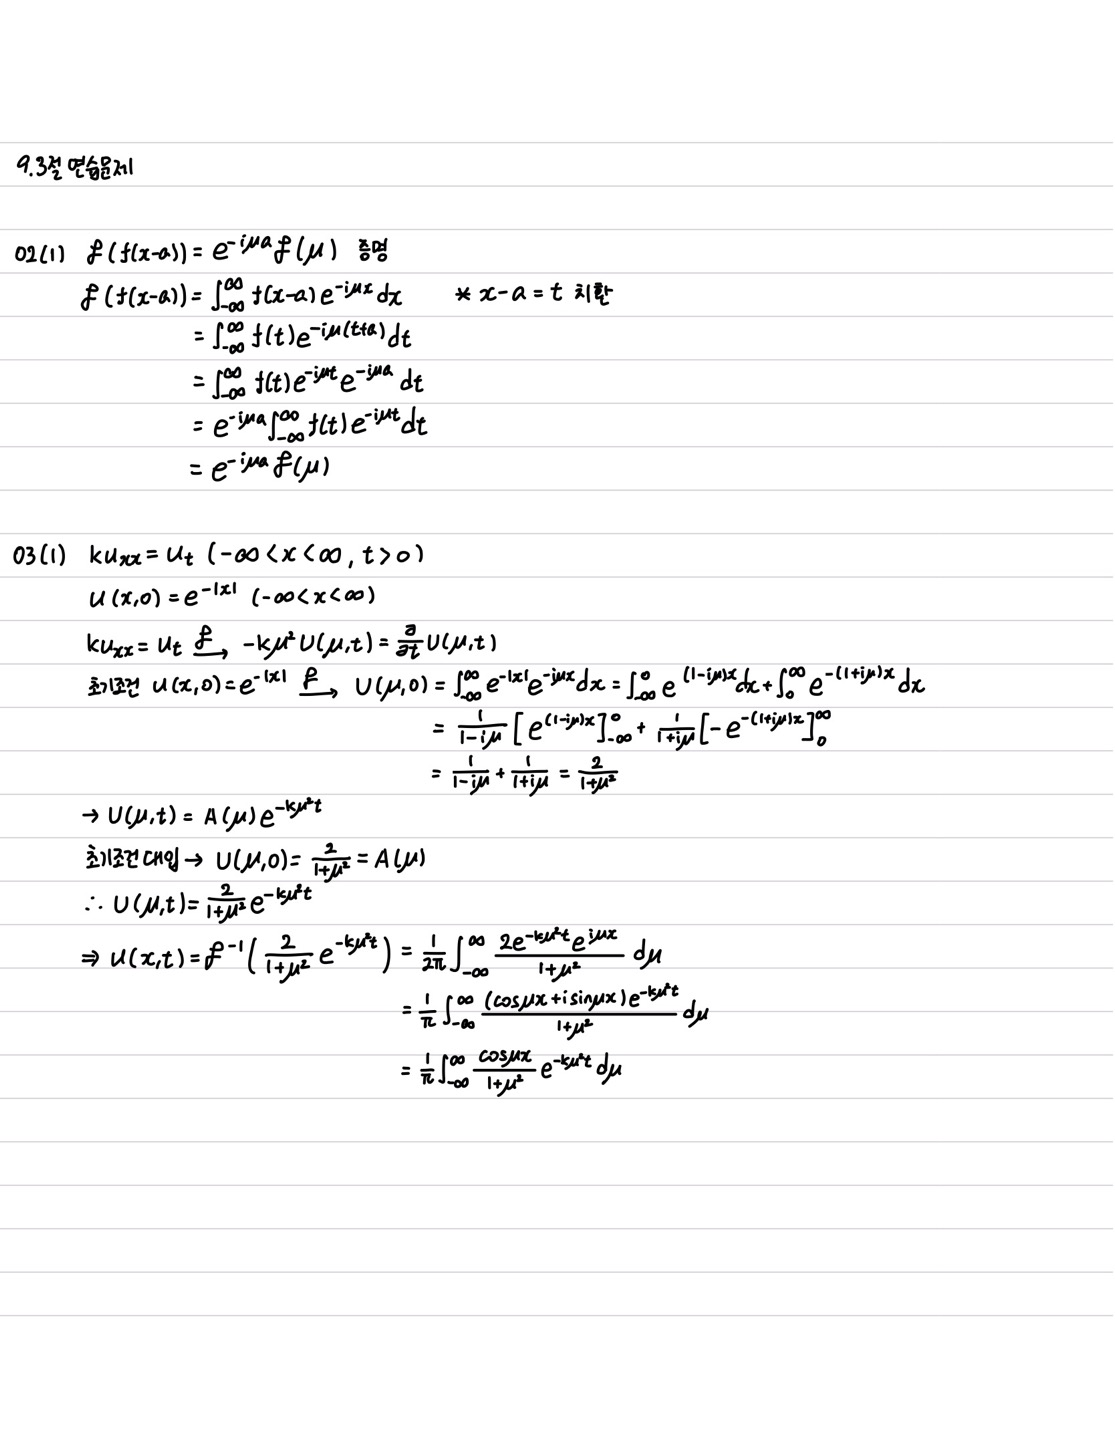 9.3절 연습문제
02(1) ℱ(f(x-a)) = e^{-iμa}ℱ(μ) 증명
ℱ(f(x-a)) = ∫_{-∞}^{∞} f(x-a)e^{-iμx}dx * x-a=t 치환
= ∫_{-∞}^{∞} f(t)e^{-iμ(t+a)}dt
= ∫_{-∞}^{∞} f(t)e^{-iμt}e^{-iμa}dt
= e^{-iμa}∫_{-∞}^{∞} f(t)e^{-iμt}dt
= e^{-iμa}ℱ(μ)
03(1) ku_{xx} = u_t (-∞<x<∞, t>0)
u(x,0) = e^{-|x|} (-∞<x<∞)
ku_{xx} = u_t ℱ→ -kμ²U(μ,t) = ∂/∂t U(μ,t)
초기조건 u(x,0) = e^{-|x|} ℱ→ U(μ,0) = ∫_{-∞}^{∞} e^{-|x|}e^{-iμx}dx = ∫_{-∞}^{0} e^{(1-iμ)x}dx + ∫_{0}^{∞} e^{-(1+iμ)x}dx
= 1/(1-iμ) [e^{(1-iμ)x}]_{-∞}^{0} + 1/(1+iμ) [-e^{-(1+iμ)x}]_{0}^{∞}
= 1/(1-iμ) + 1/(1+iμ) = 2/(1+μ²)
→ U(μ,t) = A(μ)e^{-kμ²t}
초기조건 대입 → U(μ,0) = 2/(1+μ²) = A(μ)
∴ U(μ,t) = 2/(1+μ²) e^{-kμ²t}
⇒ u(x,t) = ℱ^{-1}(2/(1+μ²) e^{-kμ²t}) = 1/2π ∫_{-∞}^{∞} 2e^{-kμ²t}e^{iμx}/(1+μ²) dμ
= 1/π ∫_{-∞}^{∞} (cosμx+isinμx)e^{-kμ²t}/(1+μ²) dμ
= 1/π ∫_{-∞}^{∞} cosμx/(1+μ²) e^{-kμ²t}dμ